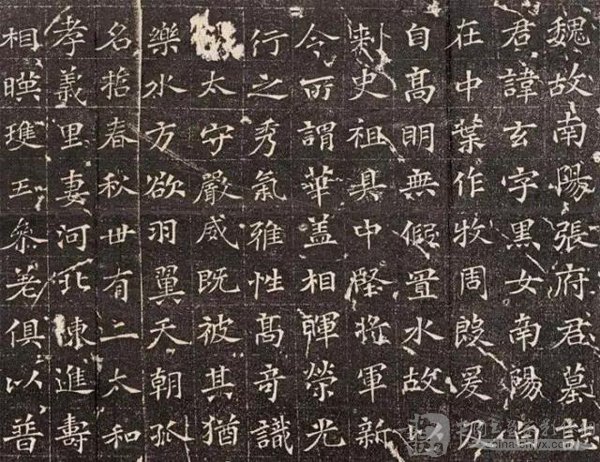 魏故南陽張府君墓誌
君諱玄字黑女南陽白
在中葉作牧周殷爰及
自高明無假置水故
刺史祖具中堅將軍新
令所謂華蓋相暉榮光
行之秀氣雅性高奇識
太守嚴威既被其猶
樂水方欲羽翼天朝抓
名哲春秋世有二太和
孝義里妻河北陳進壽
相暎瓊玉參差俱以普